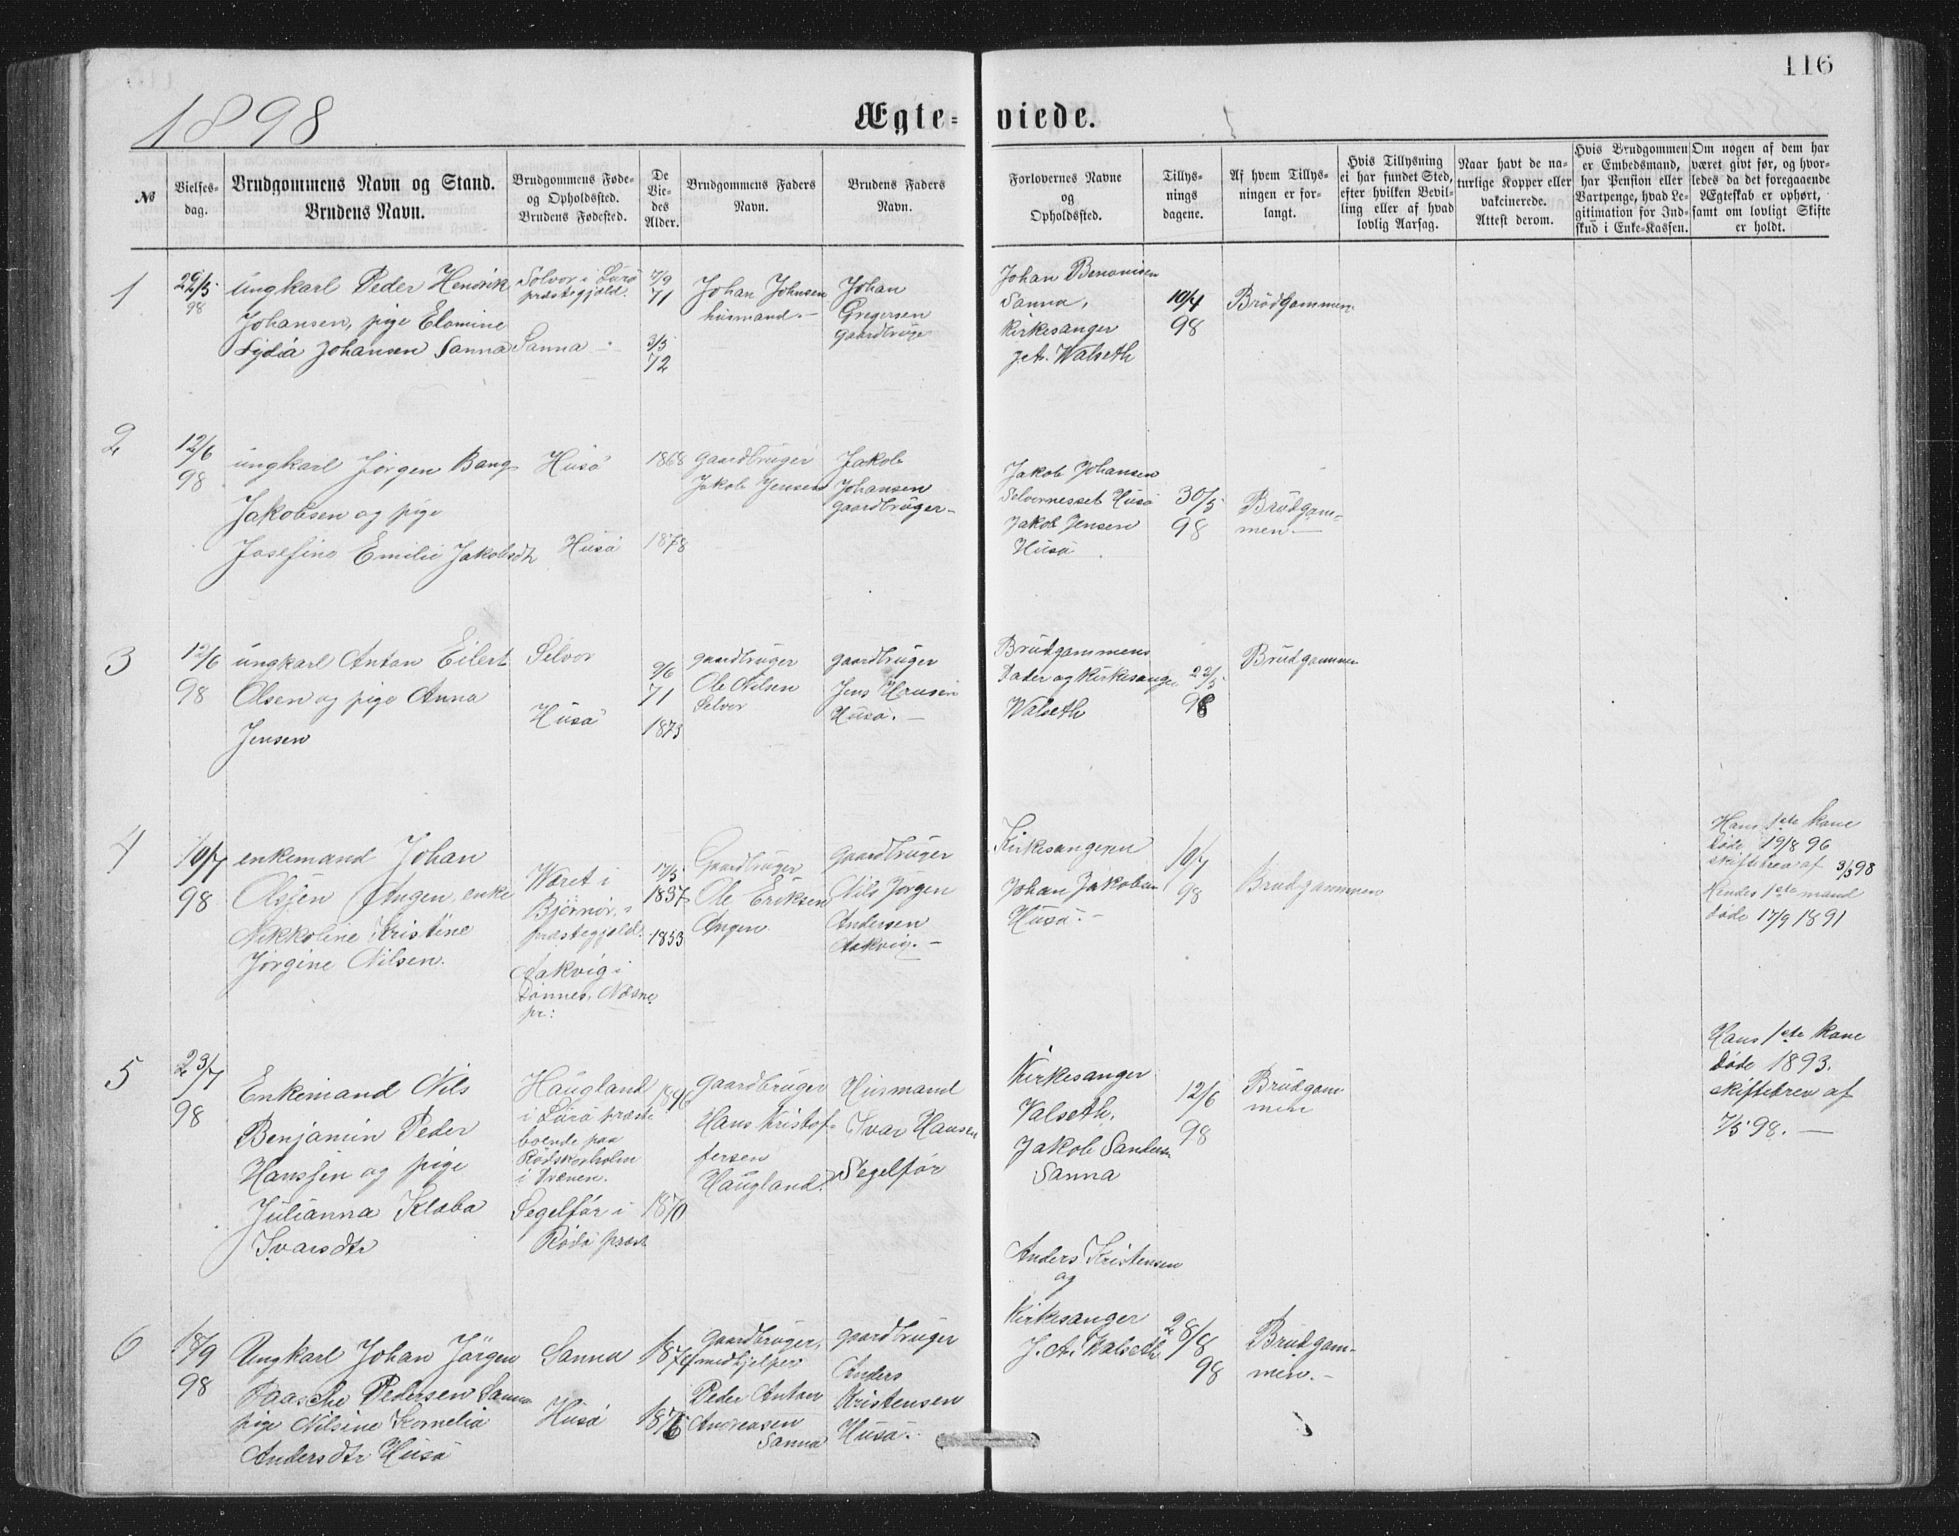 116
1898
Ægteviede.
№
Vielses-
dag.
Brudgommens Navn og Stand.
Brudens Navn.
Brudgommens Føde-
og Opholdssted.
Brudens Fødested.
De
Vie-
des
Alder.
Brudgommens Faders
Navn.
Brudens Faders
Navn.
Forlovernes Navne
og
Opholdssted.
Tillys-
nings
dagene.
Af hvem Tillys-
ningen er for-
langt.
Hvis Tillysning
ei har fundet Sted,
efter hvilken Bevil-
ling eller af hvad
lovlig Aarsag.
Naar havt de na-
turlige Kopper eller
vakcinerede.
Attest derom.
Hvis Brudgommen
er Embedsmand,
har Pension eller
Vartpenge, hvad Le-
gitimation for Ind-
skud i Enke-Kassen.
Om nogen af dem har
været givt før, og hvor-
ledes da det foregaaende
Ægteskab er ophørt,
samt om lovligt Skifte
er holdt.
1
98
ungkarl Peder Henrik
Johansen, pige Elomine
Lydia Johansen Sanna
Selvor i Lurö
præstegjeld.
Sanna
7/9
71
3/3
72
Johan Johnsen
husmand.
Johan
Gregersen
gaardbruger
Johan Benonisen
Sanna,
Kirkesanger
J. A. Walseth
10/4
98
Brudgommen
2
12/6
98
ungkarl Jörgen Bang
Jakobsen og pige
Josefine Emilie Jakobsdtr
Husö
Husö
1868
1878
gaardbruger
Jakob Jensen
Jakob
Johansen
gaardbruger
Jakob Johansen
Selvornesset Husö
Jakob Jensen
Husö
30/5
98
Brudgom-
men.
3
12/6
98
ungkarl Anton Eilert
Olsen og pige Anna
Jensen
Selvor
Husö
9/6
71
1873
gaardbruger
Ole Nilsen
Selvor
gaardbruger
Jens Hansen
Husö.
Brudgommens
Fader og Kirkesanger
Walseth
22/5
98
Brudgommen
4
10/7
98
enkemand Johan
Olsen Angen, enke
Nikkoline Kristine
Jörgine Nilsen.
Været i
Björnör
præstegjeld.
Aakvig i
Dönnes, Næsne
pr:
17/5
1837
1853
Gaardbruger
Ole Eriksen
Angen
gaardbruger
Nils Jörgen
Andersen
Aakvig.
Kirkesangeren
Johan Jakobsen
Husö.
10/7
98
Brudgommen
Hans 1ste kone
döde 19/8 96
skiftebrev af 3/5 98
Hendes 1ste mand
döde 17/9 1891
5
23/7
98
Enkemand Nils
Benjamin Peder
Hanssen og pige
Julianna Klæba
Ivarsdtr
Haugland
i Lurö præst
boende paa
Rödskjærholm
i Trænen.
Segelför i
Rödö præst
1870
gaardbruger
Hans Kristof-
fersen
Haugland.
Husmand
Ivar Hansen
Segelför
Kirkesanger
Valseth,
Jakob Sandersen
Sanna
12/6
98
Brudgom
men
Hans 1ste kone
döde 1893.
skiftebrev af
7/5 98.
6
18/9
98
Ungkarl Johan Jörgen
Paasche Pedersen Sanna
pige Nilsine Kornelia
Andersdtr Husö
Sanna
Husö
1876
gaardbruger,
medhjelper
Peder Anton
Andreasen
Sanna
gaardbruger
Anders
Kristensen
Husö.
Anders Kristensen
og
Kirkesanger
J. A. Walseth
28/8
98
Brudgom-
men.